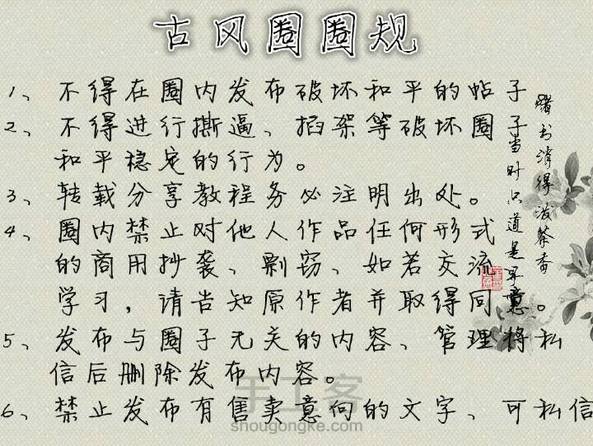 古风圈圈规
1、不得在圈内发布破坏和平的帖子
2、不得进行撕逼、掐架等破坏圈子
和平稳定的行为。
3、转载分享教程务必注明出处。
4、圈内禁止对他人作品任何形式
的商用抄袭、剽窃、如若交流
学习，请告知原作者并取得同意。
5、发布与圈子无关的内容、管理将私
信后删除发布内容。
6、禁止发布有售卖意向的文字、可私信
赌书消得泼茶香
当时只道是寻常
手工客
shougongke.com